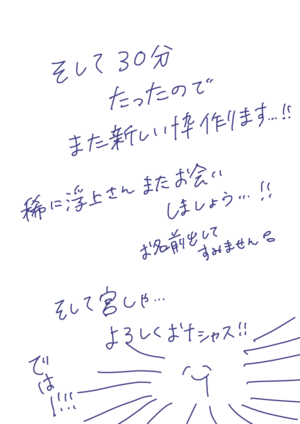 そして30分
たったので
また新しい枠作ります…!!
稀に浮上さん またお会い
しましょう…!!
お名前出して
すみません
そして宮しゃ…
よろしくおナシャス!!
では!!!